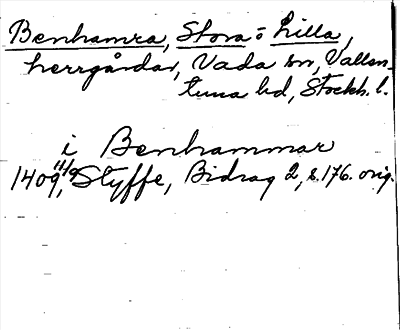 Benhamra, Stora o Lilla,
herrgårdar, Vada sn, Vallen-
tuna hd, Stockh. l.
i Benhammar
1409 11/9, Styffe, Bidrag 2, s. 176. orig.